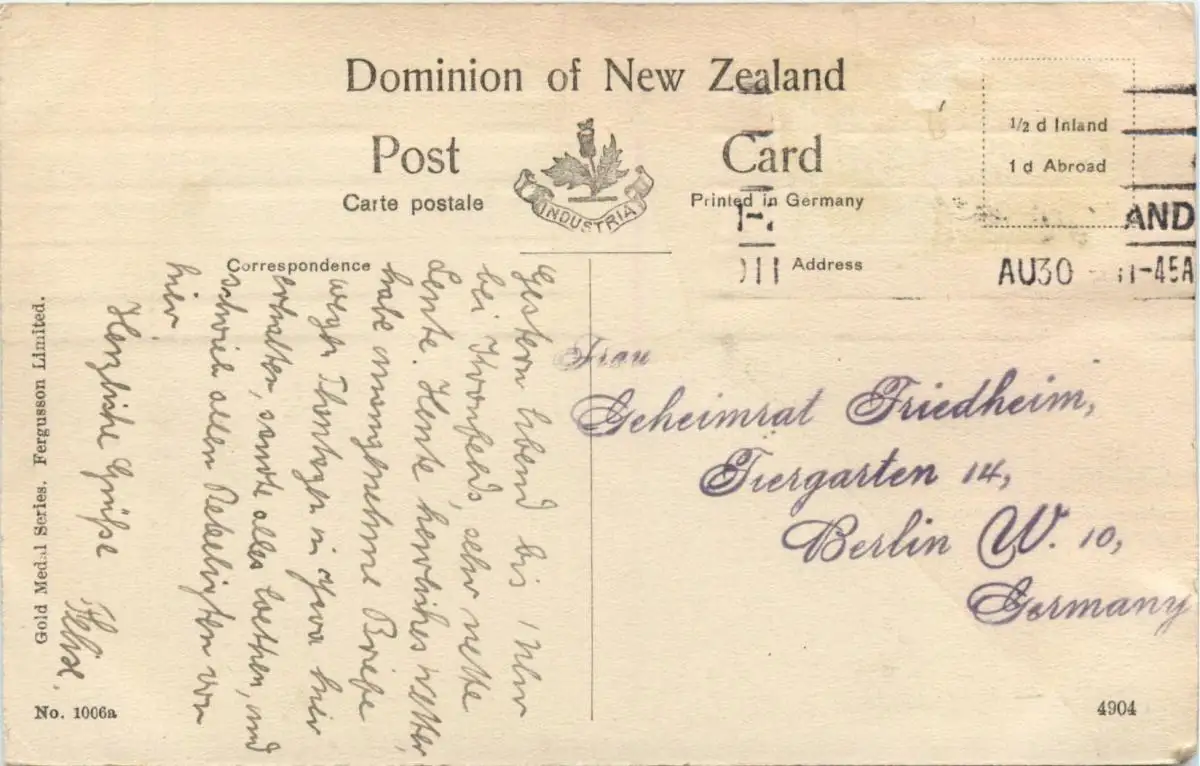 Dominion of New Zealand
Post Card
INDUSTRIA
Carte postale
Printed in Germany
1/2 d Inland
1 d Abroad
AND
AU30 11-45A
Correspondence
Address
Gestern Abend bis 1 Uhr
bei Kronfelds, sehr nette
Leute. Heute herrliches Wetter,
habe unangenehme Briefe
wegen in hier
erhalten, sende alles, und
schrieb allen Beteiligten von
hier.
Herzliche Grüße
Felix.
Frau
Geheimrat Friedheim,
Tiergarten 14,
Berlin W. 10,
Germany
Gold Medal Series. Fergusson Limited.
No. 1006a
4904